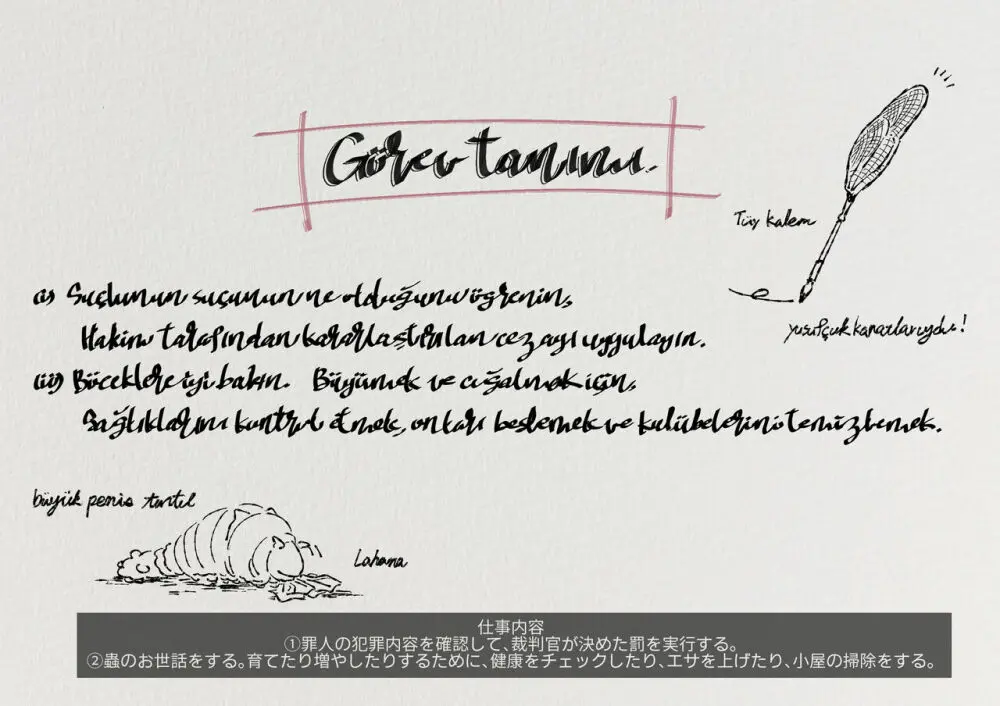 Görev tanımı.
Tüy kalem
yusufçuk kanatlarıydı!
(i) Suçlunun suçunun ne olduğunu öğrenin,
Hakim tarafından kararlaştırılan cezayı uygulayın.
(ii) Böceklere iyi bakın. Büyümek ve coğalmak için,
Sağlıklarını kontrol etmek, onları beslemek ve kulübelerini temizlemek.
büyük penis tırtıl
Lahana
仕事内容
①罪人の犯罪内容を確認して、裁判官が決めた罰を実行する。
②蟲のお世話をする。育てたり増やしたりするために、健康をチェックしたり、エサを上げたり、小屋の掃除をする。